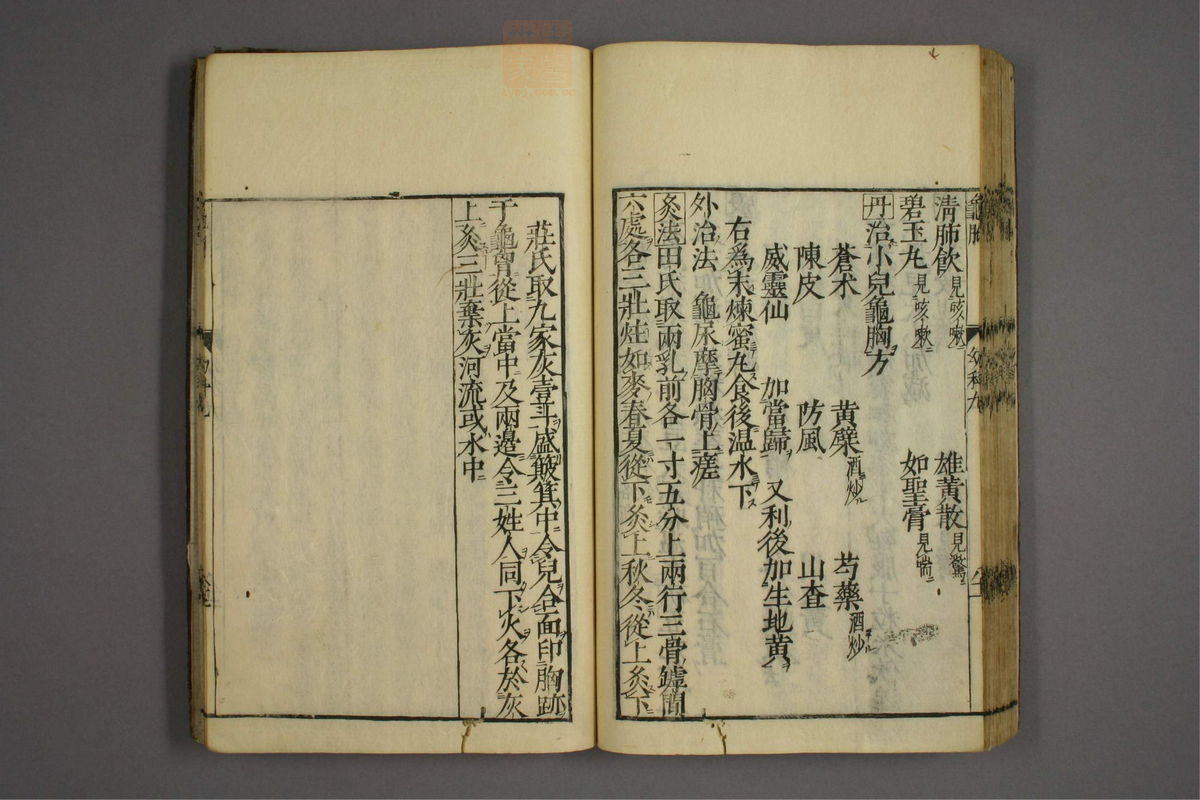 龜胸
幼科九
清肺飲 見咳嗽 雄黃散 見驚
碧玉丸 見咳嗽 如聖膏 見喘
丹治小兒龜胸方
蒼朮 黃蘗 酒炒 芍藥 酒炒
陳皮 防風 山查
威靈仙 加當歸 又利後加生地黃
右爲末煉蜜丸食後温水下
外治法 龜尿摩胸骨上瘥
灸法田氏取兩乳前各一寸五分上兩行三骨罅間
六處各三壯炷如麥春夏從下灸上秋冬從上灸下
莊氏取九家灰壹斗盛簸箕中令兒合面印胸跡
于龜胷從上當中及兩邊令三姓人同下火各於灰
上灸三壯棄灰河流或水中